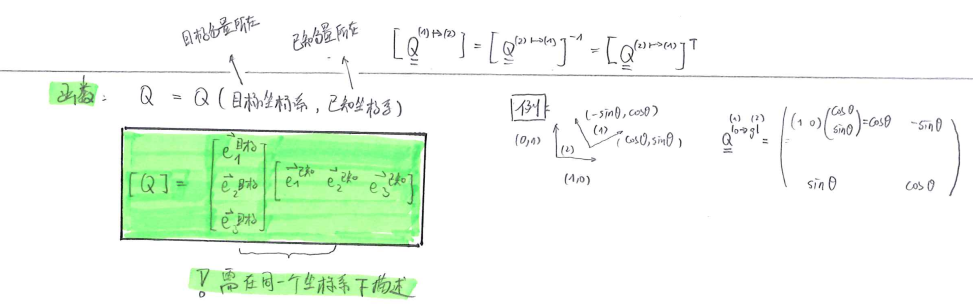 目标分量所在 已知分量所在
[Q^{(1)↦(2)}] = [Q^{(2)↦(1)}]^{-1} = [Q^{(2)↦(1)}]^T
函数: Q = Q(目标坐标系, 已知坐标系)
[Q] = [e⃗₁目标 e⃗₂目标 e⃗₃目标] [e⃗₁已知 e⃗₂已知 e⃗₃已知]
! 需在同一个坐标系下描述
例 (-sinθ, cosθ)
(0,1) (1) (cosθ, sinθ)
(2)
(1,0)
(1) (2)
Q^{lo→gl} = ( (1 0)(cosθ sinθ) = cosθ -sinθ
sinθ cosθ )